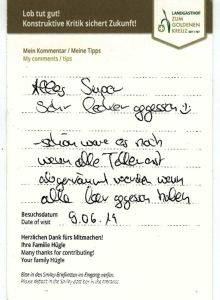 Lob tut gut!
Konstruktive Kritik sichert Zukunft!
LANDGASTHOF
ZUM
GOLDENEN
KREUZ
Mein Kommentar / Meine Tipps
My comments / tips
Alles Super
Sehr lecker gegessen
- schön wäre es noch
wenn alle Teller erst
abgeräumt werden wenn
alle über gegesen haben
Besuchsdatum
Date of visit
9.06.19
Herzlichen Dank fürs Mitmachen!
Ihre Familie Hügle
Many thanks for contributing!
Your family Hügle
Bitte in den Smiley-Briefkasten im Eingang werfen.
Please deposit in the Smiley-post box at the entrance.